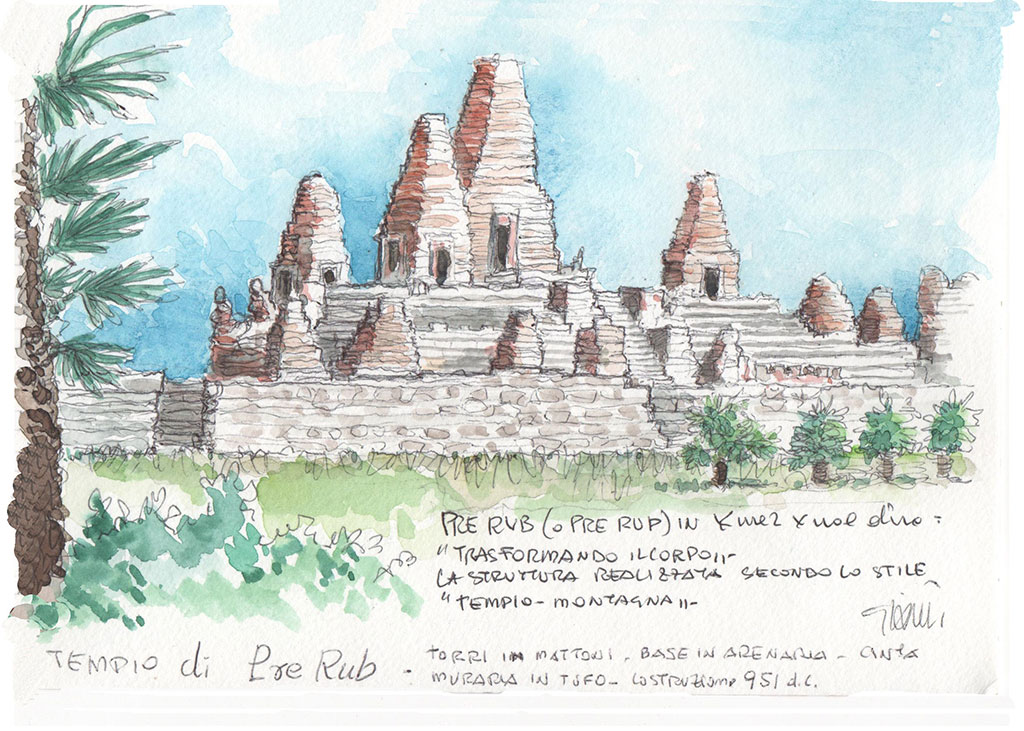 PRE RUB (o PRE RUP) IN Kmer vuol dire:
"TRASFORMANDO IL CORPO"-
LA STRUTTURA REALIZZATA SECONDO LO STILE
"TEMPIO-MONTAGNA"-
TEMPIO di Pre Rub -
TORRI IN MATTONI - BASE IN ARENARIA - CINTA
MURARIA IN TUFO - COSTRUZIONE 951 d.C.